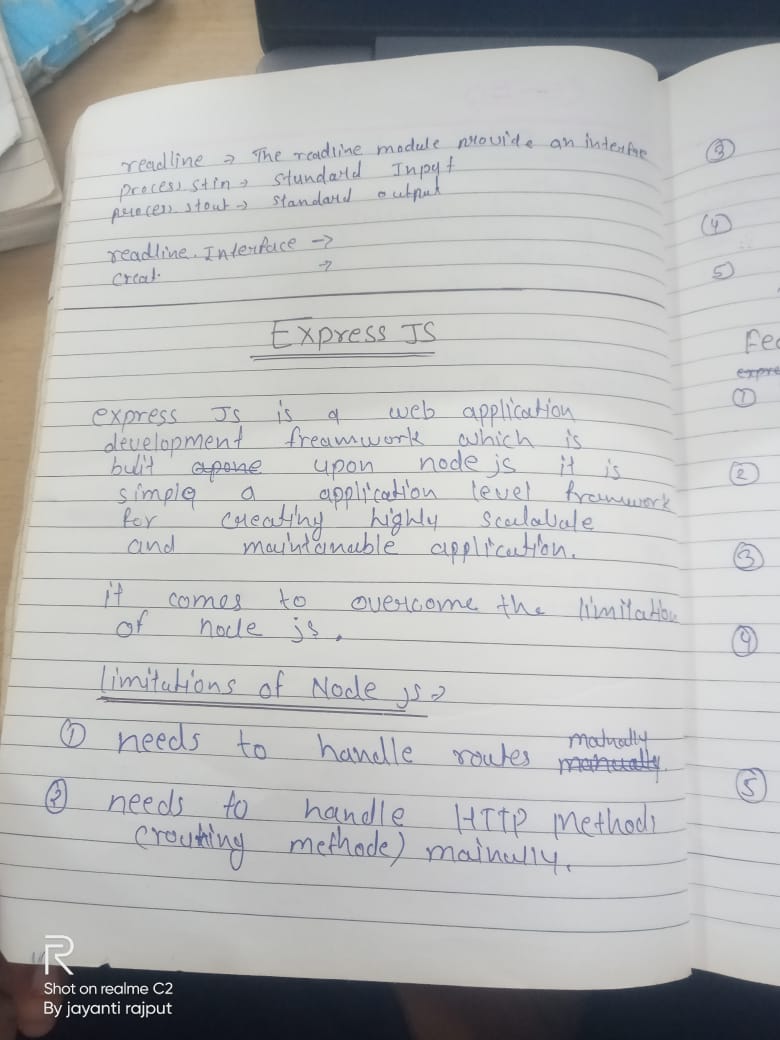 readline → The readline module provide an interfae
process stin → stundard Inpyt
process stout → standard output
readline. Interface →
Creat. →
Express JS
express Js is a web application
development freamwork which is
bulit apone upon node js it is
simple a application level framwork
for creating highly scalabale
and maintanable application.
it comes to overcome the limitation
of node js.
limitations of Node js →
① needs to handle routes matually manually
② needs to handle HTTP Methods
(routing methode) mainully.
③
④
⑤
Fea
expre
①
②
③
④
⑤
R
Shot on realme C2
By jayanti rajput